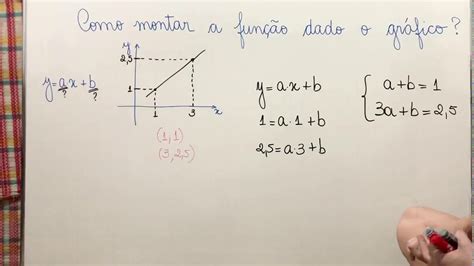 Como montar a função dado o gráfico?
y
2,5
1
1
3
x
y=ax+b
? ?
(1,1)
(3,2,5)
y=ax+b
1=a·1+b
2,5=a·3+b
{ a+b=1
3a+b=2,5